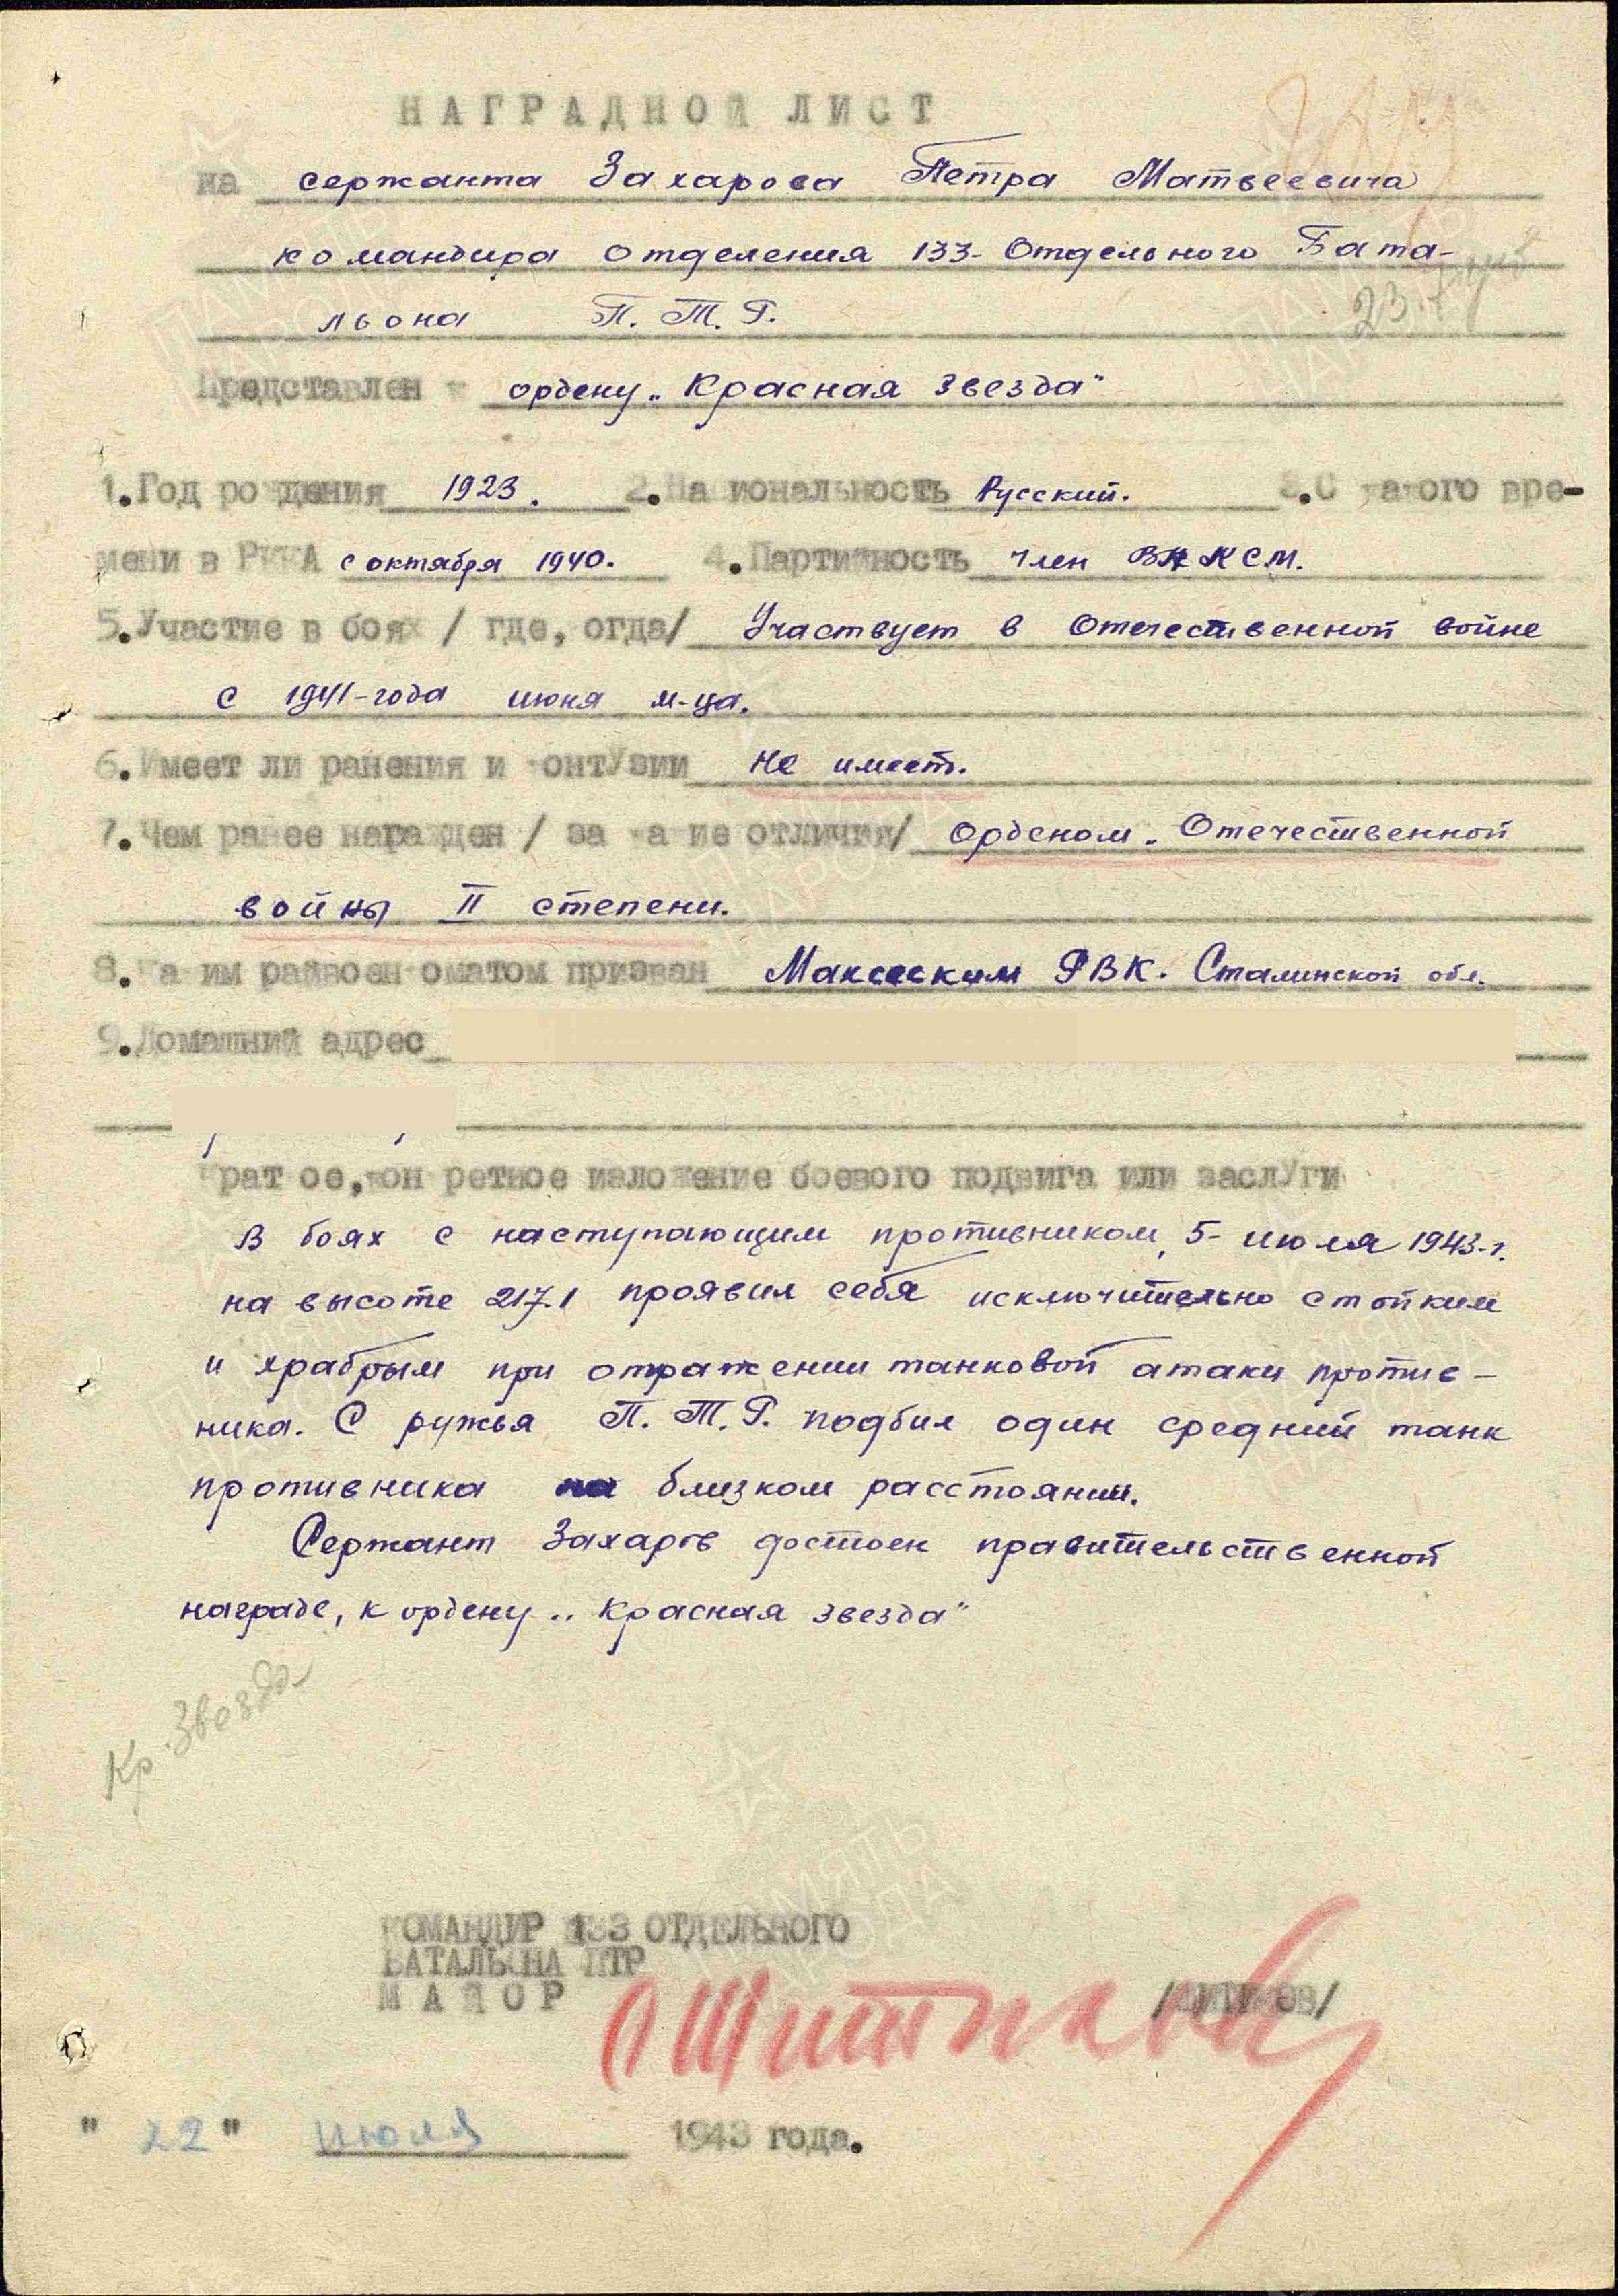 НАГРАДНОЙ ЛИСТ
на сержанта Захарова Петра Матвеевича
командира отделения 133- Отдельного Бата-
льона П. Т. Р.
Представлен к ордену „Красная звезда"
1.Год рождения 1923. 2.Национальность Русский. 3.С какого вре-
мени в РККА с октября 1940. 4.Партийность член ВЛКСМ.
5.Участие в боях / где, когда/ Участвует в Отечественной войне
с 1941-года июня м-ца.
6.Имеет ли ранения и контузии не имеет.
7.Чем ранее награжден / за какие отличия/ Орденом „Отечественной
войны II степени.
8.Каким райвоенкоматом призван РВК. Сталинской обл.
9.Домашний адрес
Краткое, конкретное изложение боевого подвига или заслуги
В боях с наступающим противником, 5- июля 1943-г.
на высоте 217.1 проявил себя исключительно стойким
и храбрым при отражении танковой атаки против-
ника. С ружья П. Т. Р. подбил один средний танк
противника на близком расстоянии.
Сержант Захаров достоен правительственной
награде, к ордену „Красная звезда"
Кр. Звезда
КОМАНДИР 133 ОТДЕЛЬНОГО
БАТАЛЬОНА ПТР
МАЙОР
"22" июля 1943 года.
ПАМЯТЬ НАРОДА